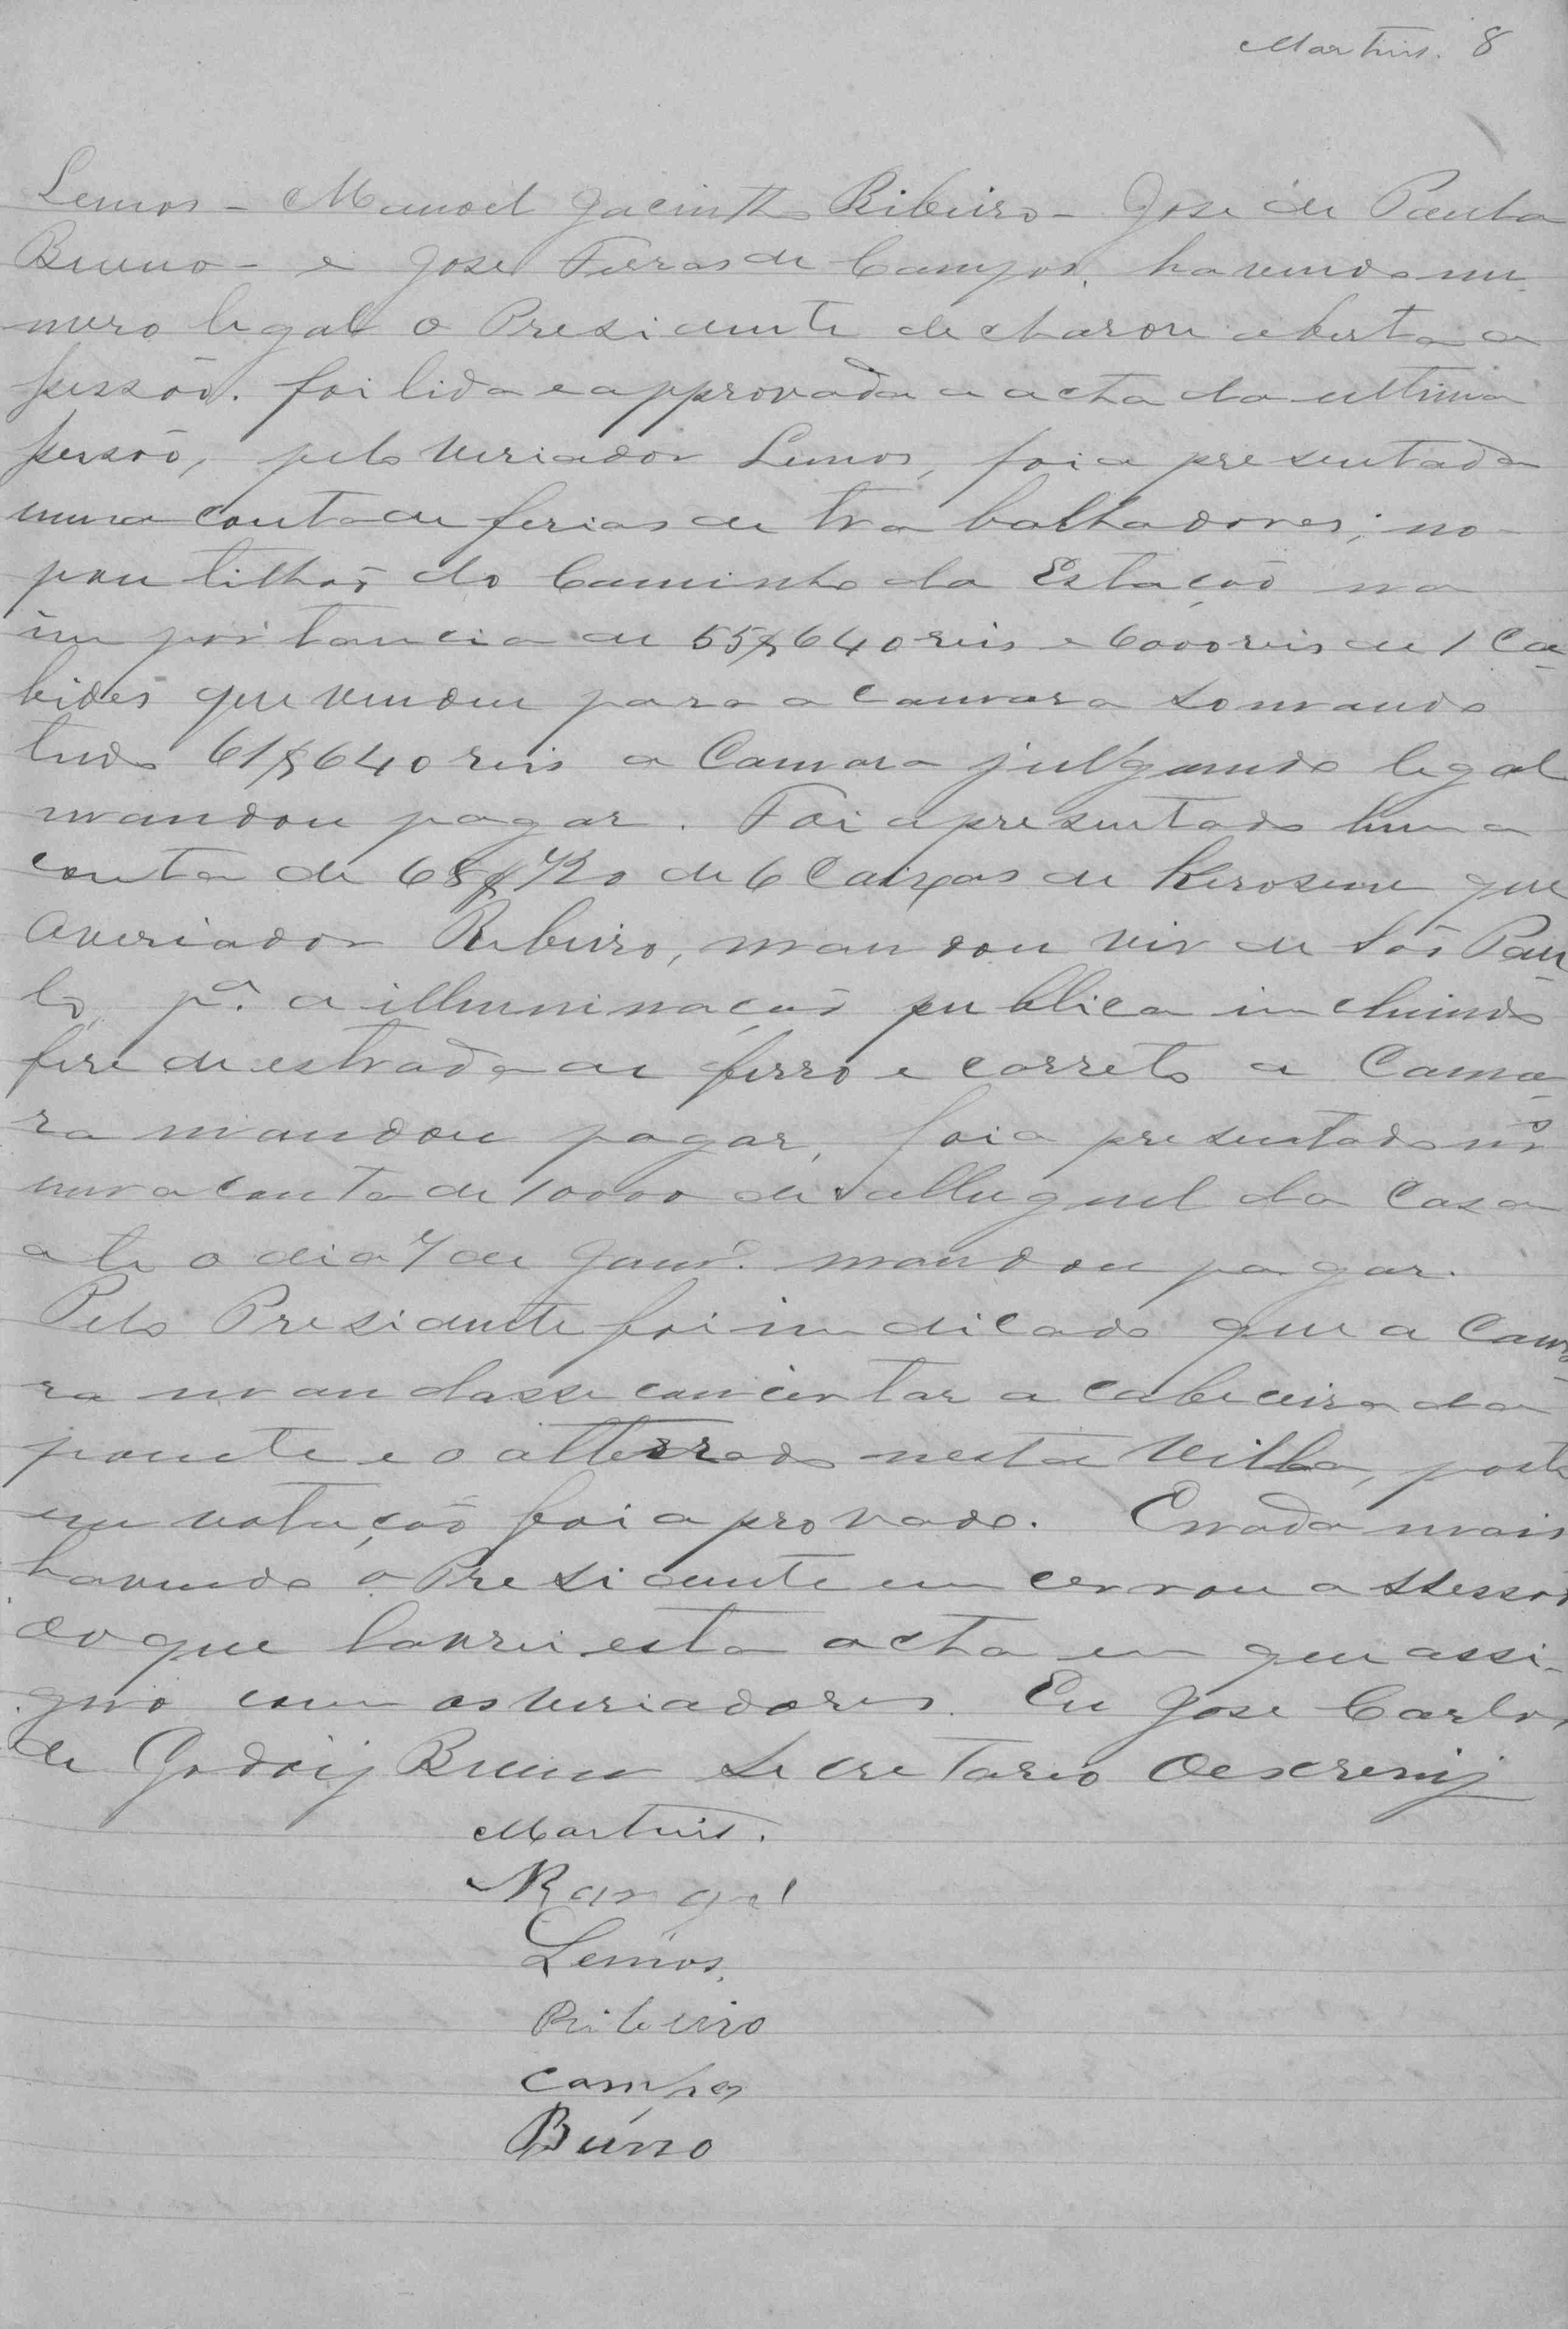 Martins. 8
Lemos - Manoel Jacintho Ribeiro - José de Paula
Bueno - e José Ferras de Campos, havendo nu
mero legal o Presidente declarou aberta a
sessão. foi lida e approvada a acta da ultima
sessão, pelo veriador Lemos, foi apresentada
uma conta de ferias de trabalhadores, no
pontilhõs do Caminho da Estação na
importancia de 55$640 reis e 6000 reis de 1 Ca
bides que vendeu para a camara somando
tudo 61$640 reis a Camara julgando legal
mandou pagar. Foi apresentado huma
conta de de 6 Caixas de Kerosene que
o veriador Ribeiro, mandou vir de São Pau
lo pª. a illuminação publica incluindo
frre de estrada de ferro e carreto a Cama
ra mandou pagar, foi apresentado
uma conta de 10000 de alluguel da Casa
ate o dia 7 de Janrº. mandou pagar.
Pelo Presidente foi indicado que a Cama
ra mandasse concertar a cabeceira da
ponete e o atterrado nesta Villa, posto
em votação foi aprovado. E nada mais
havendo o Presidente encerrou a Ssessão
do que lavrei esta acta em que assi-
gno com os veriadores. Eu José Carlos
de Godoij Bueno Secretario o escrevij
Martins.
Rangel
Lemos.
Ribeiro
Campos
Bueno